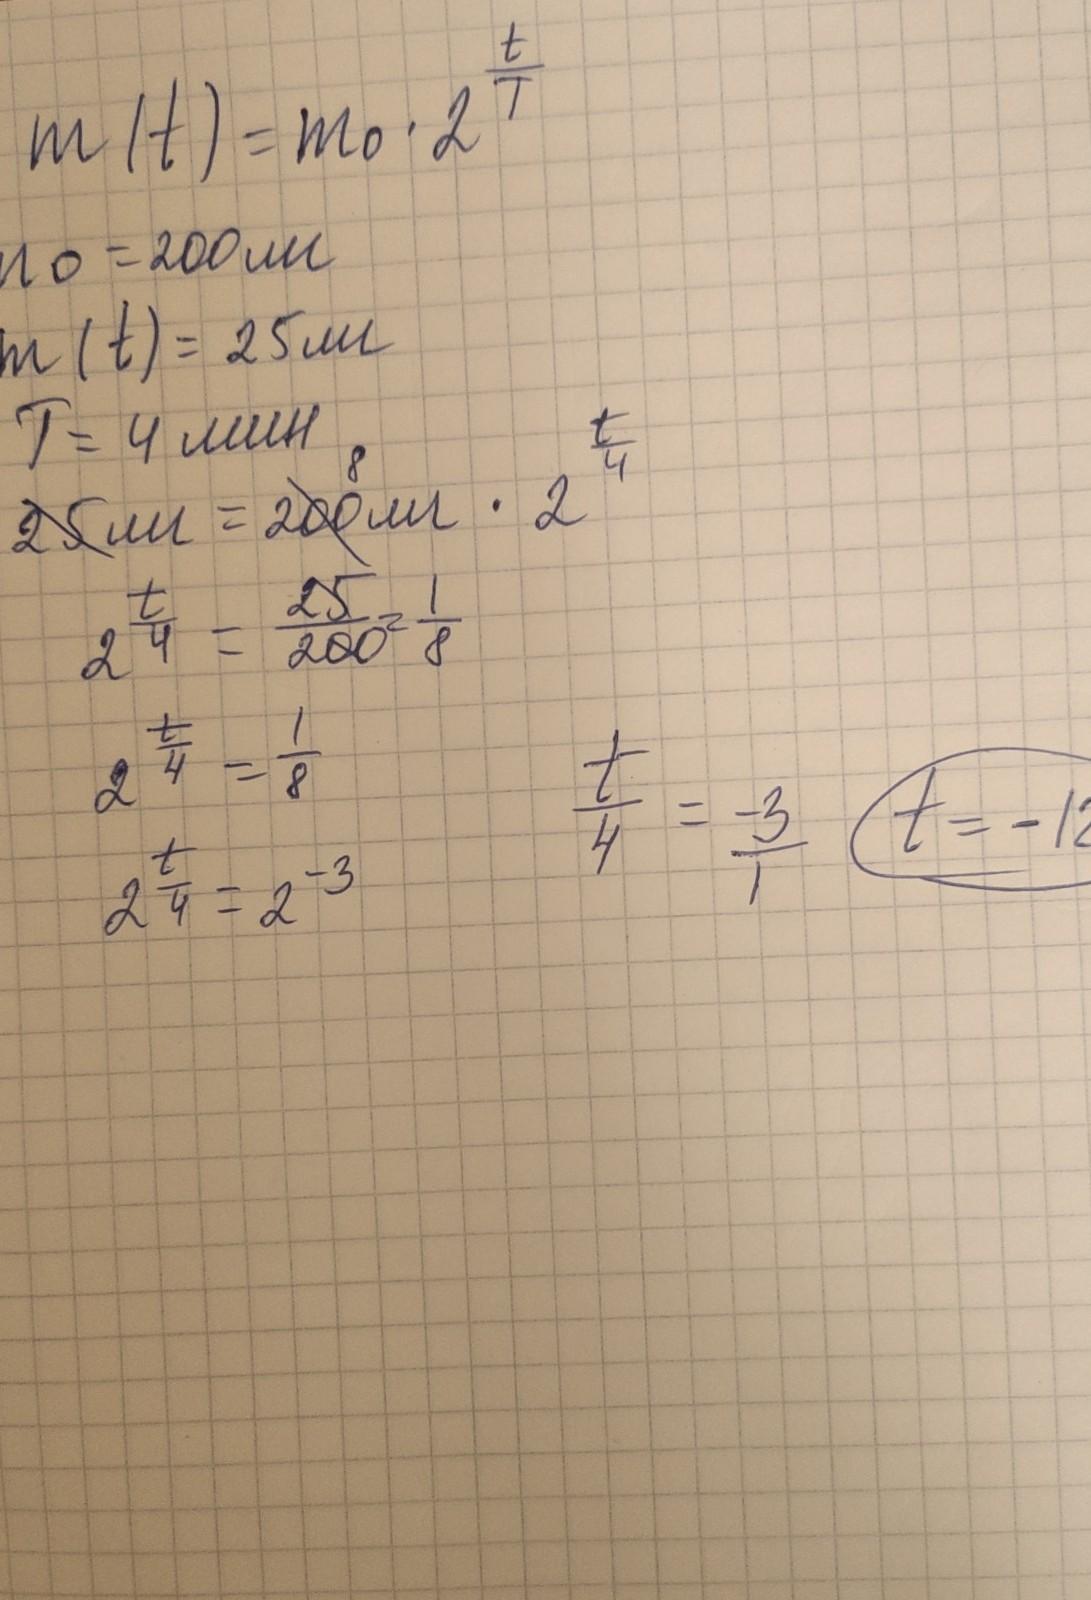 m(t) = m₀ · 2^(t/T)
m₀ = 200 мг
m(t) = 25 мг
T = 4 мин
8
25мг = 200 мг · 2^(t/4)
2^(t/4) = 25/200 = 1/8
2^(t/4) = 1/8
2^(t/4) = 2^(-3)
t/4 = -3/1
t = -12